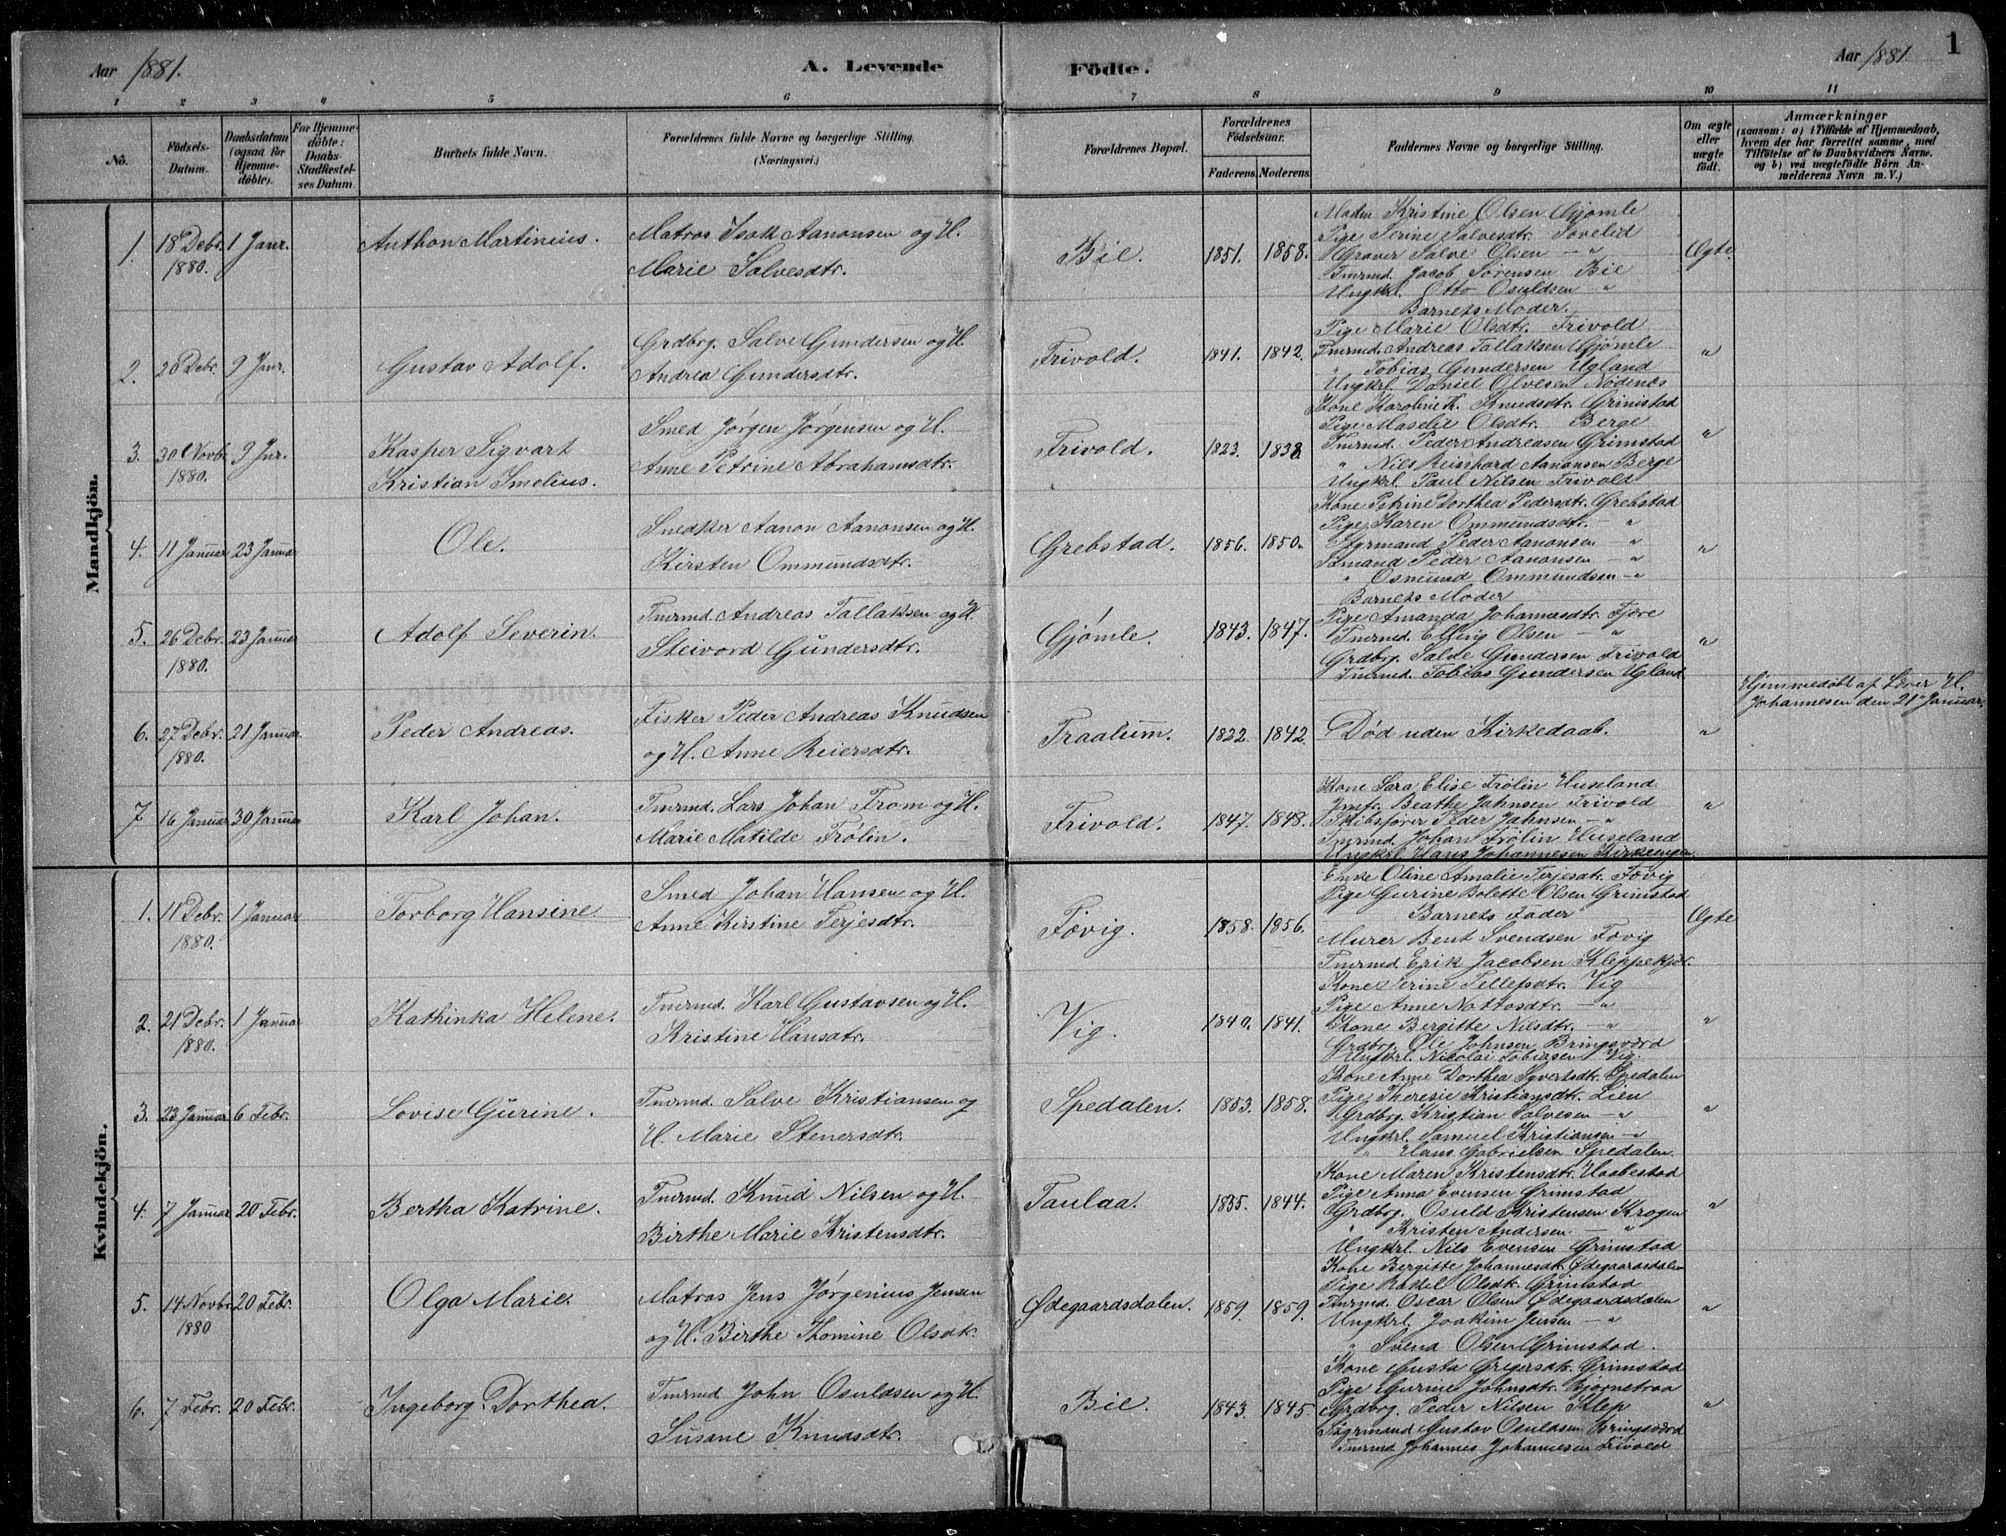 Aar 1881.
A. Levende Födte.
Aar 1881.
1
1 2 3 4 5 6 7 8 9 10 11
No.
Födsels-Datum.
Daabsdatum (ogsaa for Hjemmedöbte).
For Hjemmedöbte: Daabs-Stadfæstelses Datum.
Barnets fulde Navn.
Forældrenes fulde Navne og borgerlige Stilling.
(Næringsvei.)
Forældrenes Bopæl.
Forældrenes Födselsaar.
Faderens. Moderens.
Faddernes Navne og borgerlige Stilling.
Om ægte eller uægte født.
Anmærkninger
(saasom: a) i Tilfælde af Hjemmedaab, hvem der har forrettet samme, med Tilföielse af to Daabsvidners Navne. og b) ved uægtefödte Börn Anmelderens Navn m. V.)
Mandkjön.
1. 18 Debr. 1880. 1 Janr. Anthon Martinius.
Matros Isak Aanonsen og H.
Marie Salvesdtr.
Bie. 1851. 1858.
Moder Kristine Olsen Gjømle
Pige Serine Salvesdtr. Sovelid
Graver Salve Olsen — "
Tmrmd. Jacob Sørensen Bie
Ungkrl. Otto Osuldsen "
Barnets Moder.
Ægte.
2. 28 Debr. 9 Janr. Gustav Adolf.
Grdbrg. Salve Gundersen og H.
Andrea Gundersdtr.
Frivold. 1841. 1842.
Pige Marie Olsdtr. Frivold
Tmrmd. Andreas Tallaksen Gjømle
" Tobias Gundersen Ugland
Ungkrl. Daniel Olvesen Nødenæs
"
3. 30 Novbr. 1880. 9 Jnr. Kasper Sigvart
Kristian Imelius.
Smed Jørgen Jørgensen og H.
Anne Petrine Abrahamsdtr.
Frivold. 1823. 1838.
Kone Karoline K. Knudsdtr. Grimstad
Pige Maselie Olsdtr. Berge
Tmrmd. Peder Andreasen Grimstad
" Nils Reinhard Aanonsen Berge
Ungkrl. Paul Nilsen Frivold
"
4. 11 Januar 23 Januar Ole.
Snedker Aanon Aanonsen og H.
Kirsten Ommundsdtr.
Grebstad. 1856. 1850.
Kone Petrine Dorthea Pedersdtr. Grebstad
Pige Karen Ommundsdtr. — "
Styrmand Peder Aanonsen — "
Sømand Peder Aanonsen — "
" Osmund Ommundsen — "
Barnets Moder
"
5. 26 Debr. 1880. 23 Januar Adolf Severin.
Tmrmd. Andreas Tallaksen og H.
Steivord Gundersdtr.
Gjømle. 1843. 1847.
Pige Amanda Johannesdtr. Fjære
Tmrmd. Elling Olsen — "
Grdbrg. Salve Gundersen Frivold
Tmrmd. Tobias Gundersen Ugland
"
6. 27 Debr. 1880. 21 Januar Peder Andreas.
Fisker Peder Andreas Knudsen
og H. Anne Reiersdtr.
Traalum. 1822. 1842.
Død uden Kirkedaab.
"
Hjemmedøbt af Lærer H.
Johannesen den 21 Januar.
7 16 Januar 30 Januar Karl Johan.
Tmrmd. Lars Johan From og H.
Marie Matilde Frølin.
Frivold. 1847. 1848.
Kone Sara Elise Frølin Huseland
Jmfr. Beathe Jahnsen Frivold
Skibsfører Peder Jahnsen — "
Tmrmd. Johan Frølin Huseland
Ungkrl. Hans Johannesen Kirkeengen
"
Kvindekjön.
1. 11 Debr. 1880. 1 Januar Torborg Hansine
Smed Johan Hansen og H.
Anne Kirstine Terjesdtr.
Fevig. 1858. 1856.
Enke Oline Amalie Terjesdtr. Fevig
Pige Gurine Bolette Olsen Grimstad
Barnets Fader
Murer Bent Svendsen Fevig
Tmrmd. Erik Jacobsen Kleppekjær.
Ægte
2. 21 Debr. 1880. 1 Januar Kathinka Helene.
Tmrmd. Karl Gustavsen og H.
Kristine Hansdtr.
Vig. 1840. 1841.
Kone Serine Tellefsdtr. Vig
Pige Anne Nottosdtr. — "
Kone Bergitte Nilsdtr. — "
Grdbrg. Ole Johnsen Bringsværd
Ungkrl. Nicolai Tobiasen Vig.
"
3. 23 Januar 6 Febr. Lovise Gurine.
Tmrmd. Salve Kristiansen og
H. Marie Stenersdtr.
Spedalen. 1853. 1858.
Kone Anne Dorthea Syvertsdtr. Spedalen
Pige Theresie Kristiansdtr. Lien
Grdbrg. Kristian Salvesen — "
Ungkrl. Samuel Kristiansen — "
" Hans Gabrielsen Spedalen.
"
4. 7 Januar 20 Febr. Bertha Katrine.
Tmrmd. Knud Nilsen og H.
Birthe Marie Kristensdtr.
Taulaa. 1835. 1844.
Kone Maren Kristensdtr. Haabestad
Pige Anna Evensen Grimstad
Grdbrg. Osuld Kristensen Krogen
" Kristen Andersen — "
Ungkrl. Nils Evensen Grimstad
"
5. 14 Novbr. 1880 20 Febr. Olga Marie.
Matros Jens Jørgenius Jensen
og H. Birthe Thomine Olsdtr.
Ødegaardsdalen. 1859. 1859.
Kone Bergitte Johannesdtr. Ødegaardsdalen
Pige Radel Olsdtr. Grimstad
Tmrmd. Oscar Olsen Ødegaardsdalen
Ungkrl. Joakim Jensen — "
" Svend Olsen Grimstad.
"
6. 7 Febr. 20 Febr. Ingeborg Dorthea.
Tmrmd. John Osuldsen og H.
Susane Knudsdtr.
Bie. 1843. 1845.
Kone Gusta Gregersdtr. Grimstad
Pige Gurine Johnsdtr. Bjørnetraa
Grdbrg. Peder Nilsen Klep
Styrmand Gustav Osuldsen Bringsværd
Tmrmd. Johannes Johannesen Frivold
"